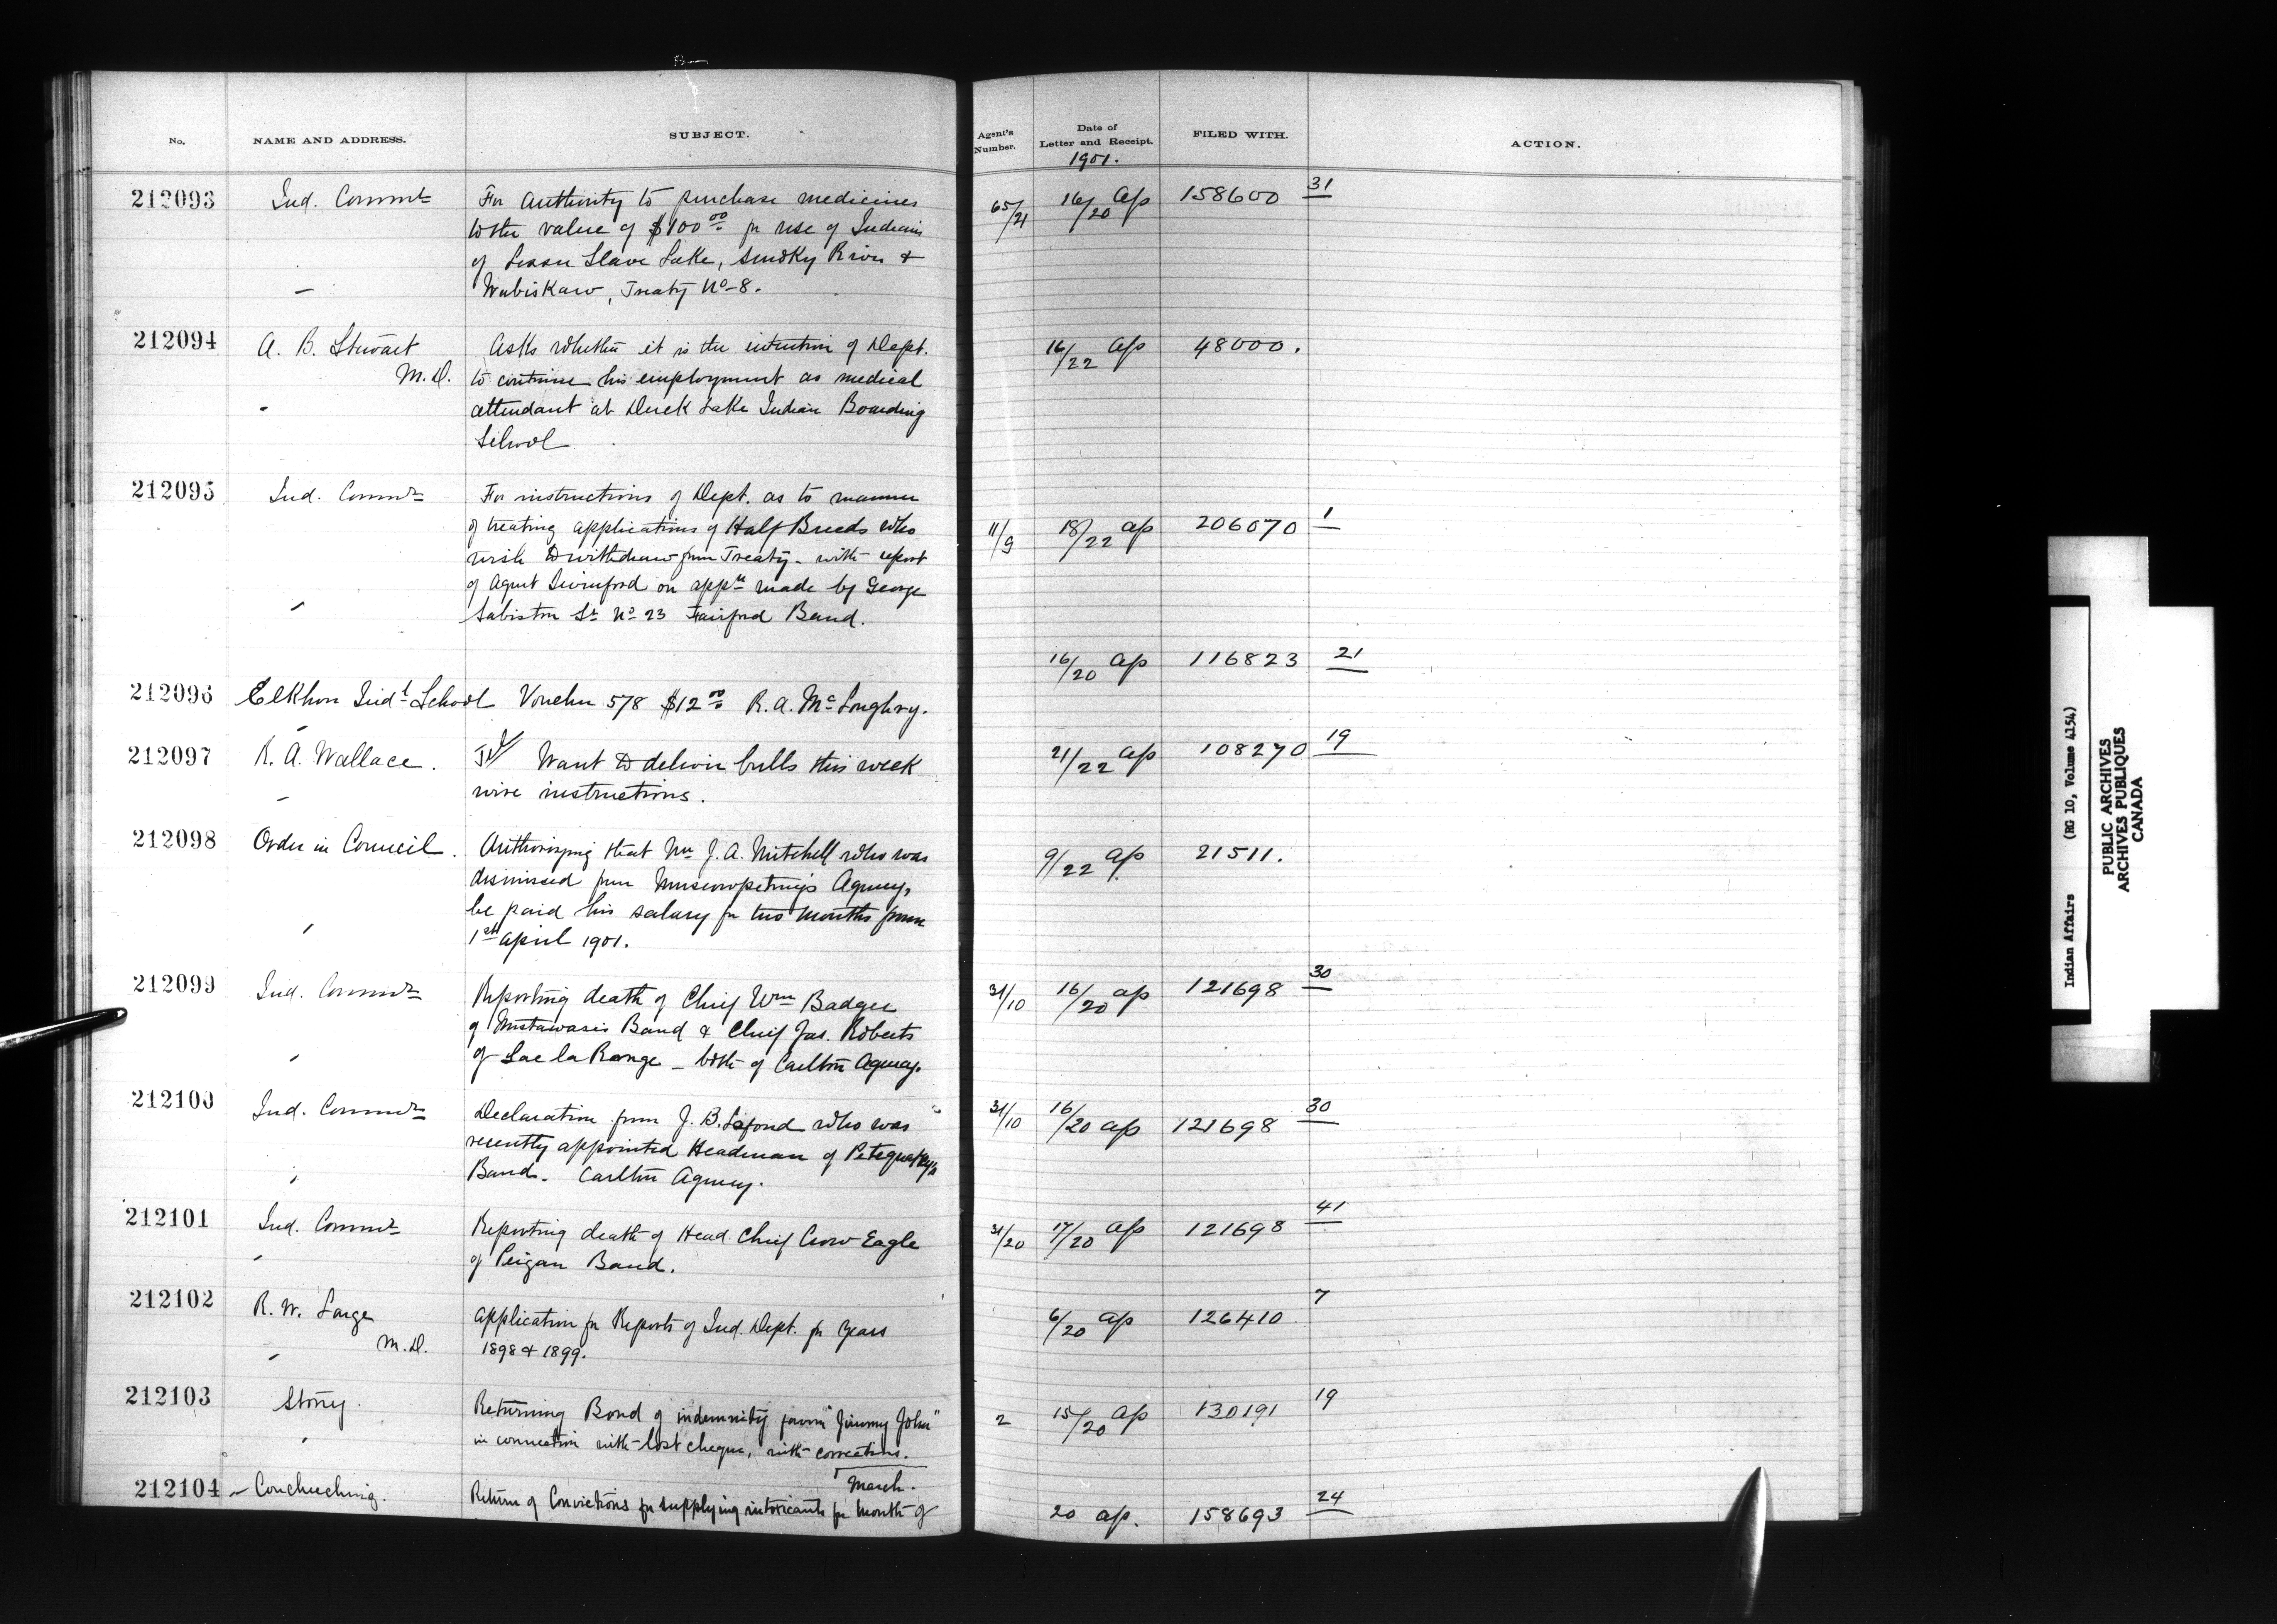 No.
NAME AND ADDRESS.
SUBJECT.
Agent's Number.
Date of Letter and Receipt.
FILED WITH.
ACTION.
1901.
212093 Ind. Commr For Authority to purchase medicines 65/21 16/20 Ap 158600 31
to the value of $100 00 for use of Indians
of Lesser Slave Lake, Smoky River &
Wabiskaw, Treaty No 8.
212094 A. B. Stewart Asks whether it is the intention of Dept. 16/22 Ap 48000.
M.D. to continue his employment as medical
attendant at Duck Lake Indian Boarding
School
212095 Ind. Commr For instructions of Dept. as to manner
of treating applications of Half Breeds who 11/9 18/22 Ap 206070 1
wish to withdraw from Treaty - with report
of Agent Swinford on appn made by George
Sabiston Sr No 23 Fairford Band.
212096 Elkhorn Indl School Voucher 578 $12 00 R. A. McLoughry. 16/20 Ap 116823 21
212097 R. A. Wallace. Want to deliver bulls this week 21/22 Ap 108270 19
wire instructions.
212098 Order in Council. Authorizing that Mr J. A. Mitchell who was 9/22 Ap 21511.
dismissed from Muscowpetung's Agency,
be paid his salary for two months from
1st April 1901.
212099 Ind. Commr Reporting death of Chief Wm Badger 31/10 16/20 Ap 121698 30
of Mistawasis Band & Chief Jas. Roberts
of Lac la Ronge - both of Carlton Agency.
212100 Ind. Commr Declaration from J. B. Lafond who was 31/10 16/20 Ap 121698 30
recently appointed Headman of Petequakey's
Band. Carlton Agency.
212101 Ind. Commr Reporting death of Head Chief Crow Eagle 31/20 17/20 Ap 121698 41
of Peigan Band.
212102 R. W. Large Application for Reports of Ind. Dept. for years 6/20 Ap 126410 7
M.D. 1898 & 1899.
212103 Stony. Returning Bond of indemnity from "Jimmy John" 2 15/20 Ap 130191 19
in connection with lost cheque, with corrections.
March.
212104 Couchiching. Return of Convictions for supplying intoxicants for month of 20 Ap. 158693 24
Indian Affairs (RG 10, Volume 4154)
PUBLIC ARCHIVES
ARCHIVES PUBLIQUES
CANADA